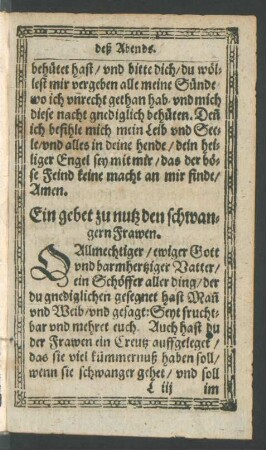 deß Abends.
behütet hast/ vnd bitte dich/ du wöl-
lest mir vergeben alle meine Sünde
wo ich vnrecht gethan hab/ vnd mich
diese nacht gnediglich behüten. Deñ
ich befihle mich mein Leib vnd See-
le/ vnd alles in deine hende/ dein hei-
liger Engel sey mit mir/ das der bö-
se Feind keine macht an mir finde/
Amen.
Ein gebet zu nutz den schwan-
gern Frawen.
O Allmechtiger/ ewiger Gott
vnd barmhertziger Vatter/
ein Schöffer aller ding/ der
du gnediglichen gesegnet hast Mañ
vnd Weib/ vnd gesagt: Seyt frucht-
bar vnd mehret euch. Auch hast du
der Frawen ein Creutz auffgeleget/
das sie viel kümmernuß haben soll/
wenn sie schwanger gehet/ vnd soll
L iij im